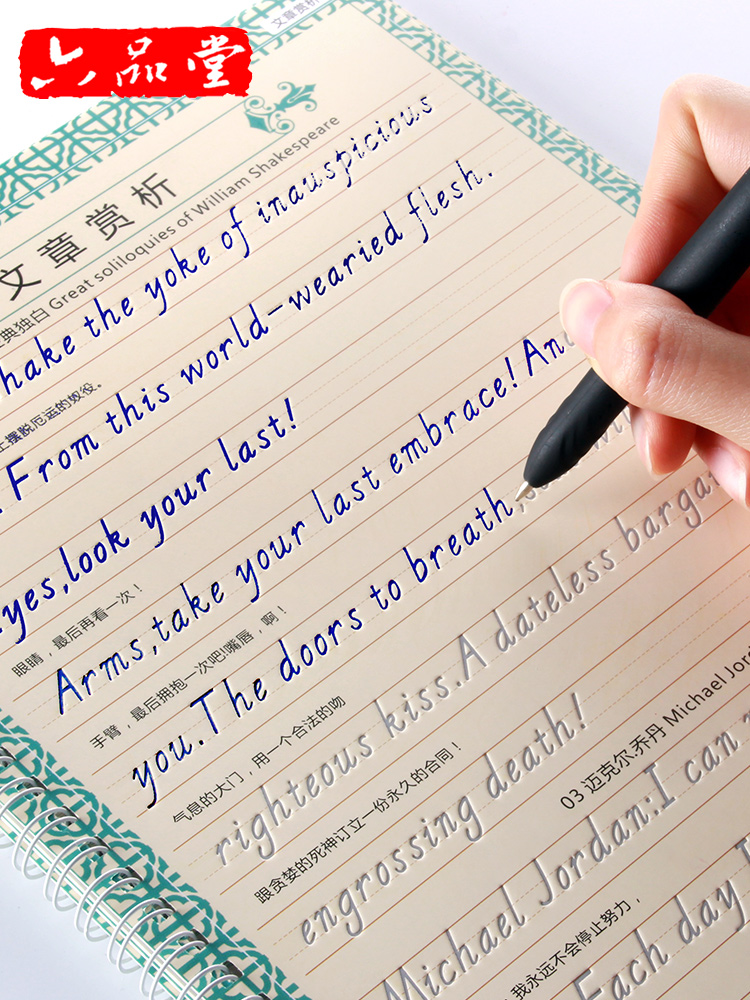 六品堂
文章赏析
文章赏析
典独白 Great soliloquies of William Shakespeare
hake the yoke of inauspicious
上摆脱厄运的奴役。
.From this world-wearied flesh.
yes,look your last!
眼睛，最后再看一次！
Arms,take your last embrace! And
手臂，最后拥抱一次吧!嘴唇，啊！
you.The doors to breath,
气息的大门，用一个合法的吻
righteous kiss.A dateless bargai
跟贪婪的死神订立一份永久的合同！
engrossing death!
03 迈克尔.乔丹 Michael Jord
Michael Jordan:I can
我永远不会停止努力，
Each day I